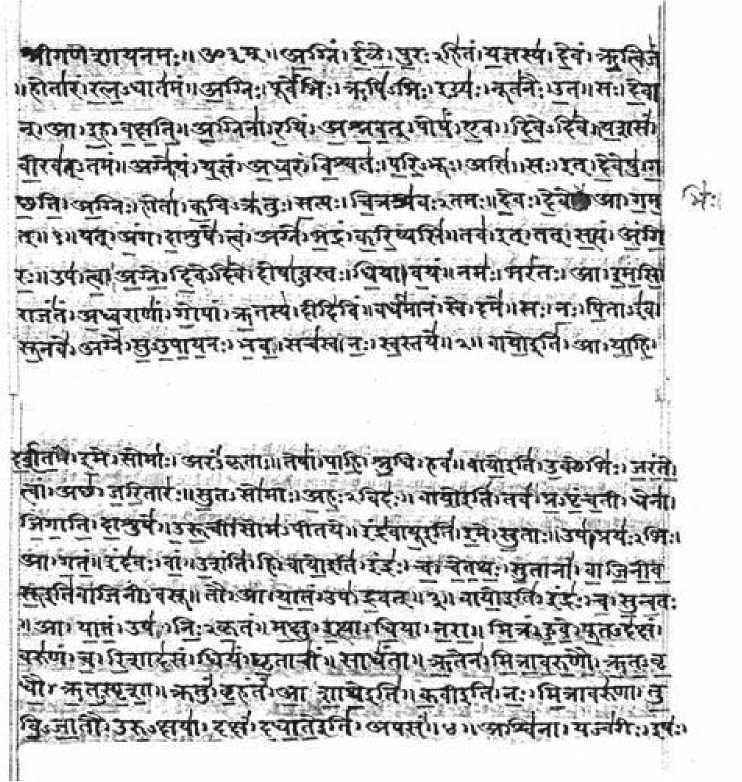 श्रीगणेशायनमः॥ॐ३म्॥अग्निं। ईळे। पुरःऽहितं। यज्ञस्य। देवं। ऋत्विजं
॥होतारं। रत्नऽधातमं॥अग्निः। पूर्वेभिः। ऋषिऽभिः। ईड्यः। नूतनैः। उत॥सः। देवा
न्। आ। इह। वक्षति॥अग्निना। रयिं। अश्नवत्। पोषं। एव। दिवेऽदिवे। यशसं
वीरवत्ऽतमं॥अग्ने। यं। यज्ञं। अध्वरं। विश्वतः। परिऽभूः। असि॥सः। इत्। देवेषु। ग
च्छति। अग्निः। होता। कविऽक्रतुः। सत्यः। चित्रश्रवःऽतमः॥देवः। देवे आ। गम भिः
त्॥१॥यत्। अंग। दाशुषे। त्वं। अग्ने। भद्रं। करिष्यसि॥तव। इत्। तत्। सत्यं। अंगि
रः॥उप। त्वा। अग्ने। दिवेऽदिवे। दोषाऽवस्तः। धिया। वयं। नमः। भरंतः। आ। इमसि॥
राजंतं। अध्वराणां। गोपां। ऋतस्य। दीदिविं। वर्धमानं। स्वे। दमे॥सः। नः। पिताऽइव
सूनवे। अग्ने। सुऽउपायनः। भव॥सचस्व। नः। स्वस्तये॥२॥वायोइति। आ। याहि।
दर्शत। इमे। सोमाः। अरंऽकृताः॥तेषां। पाहि। श्रुधि। हवं॥वायोइति। उक्थेभिः। जरंते।
त्वां। अच्छ। जरितारः॥सुतऽसोमाः। अहःऽविदः॥वायोइति। तव। प्रऽपृंचती। धेना।
जिगाति। दाशुषे॥उरूची। सोमऽपीतये॥इंद्रवायूइति। इमे। सुताः॥उप। प्रयःऽभिः।
आ। गतं॥इंदवः। वां। उशंति। हि॥वायोइति। इंद्रः। च। चेतथः। सुतानां। वाजिनीव
सूइतिवाजिनीऽवसू॥तौ। आ। यातं। उप। द्रवत्॥३॥वायोइति। इंद्रः। च। सुन्वतः
॥आ। यातं। उप। निःऽकृतं॥मक्षु। इत्था। धिया। नरा॥मित्रं। हुवे। पूतऽदक्षं।
वरुणं। च। रिशादसं॥धियं। घृताचीं। साधंता॥ऋतेन। मित्रावरुणौ। ऋतऽवृ
धौ। ऋतऽस्पृशा॥क्रतुं। बृहंतं। आ शाथेइति॥कवीइति। नः। मित्रावरुणा। तु
विऽजातौ। उरुऽक्षया। दक्षं। दधातेइति। अपसं॥४॥अश्विना। यज्वरीः। इषः।